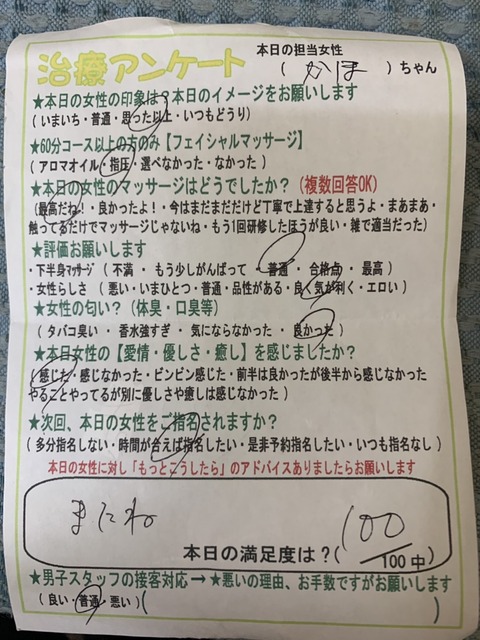 治療アンケート
本日の担当女性
( かほ )ちゃん
★本日の女性の印象は?本日のイメージをお願いします
(いまいち・普通・思った以上・いつもどうり)
★60分コース以上の方のみ【フェイシャルマッサージ】
(アロマオイル・指圧・選べなかった・なかった)
★本日の女性のマッサージはどうでしたか?(複数回答OK)
(最高だね!・良かったよ!・今はまだまだだけど丁寧で上達すると思うよ・まあまあ・
触ってるだけでマッサージじゃないね・もう1回研修したほうが良い・雑で適当だった)
★評価お願いします
・下半身マッサージ(不満 ・ もう少しがんばって ・ 普通 ・ 合格点 ・ 最高)
・女性らしさ (悪い・いまひとつ・普通・品性がある・良く気が利く・エロい)
★女性の匂い?(体臭・口臭等)
(タバコ臭い ・ 香水強すぎ ・ 気にならなかった ・ 良かった)
★本日女性の【愛情・優しさ・癒し】を感じましたか?
(感じた・感じなかった・ビンビン感じた・前半は良かったが後半から感じなかった
やることやってるが別に優しさや癒しは感じなかった)
★次回、本日の女性をご指名されますか?
(多分指名しない・時間が合えば指名したい・是非予約指名したい・いつも指名なし)
本日の女性に対し「もっとこうしたら」のアドバイスありましたらお願いします
またね
本日の満足度は?(100/100中)
★男子スタッフの接客対応→★悪いの理由、お手数ですがお願いします
(良い・普通・悪い)( )